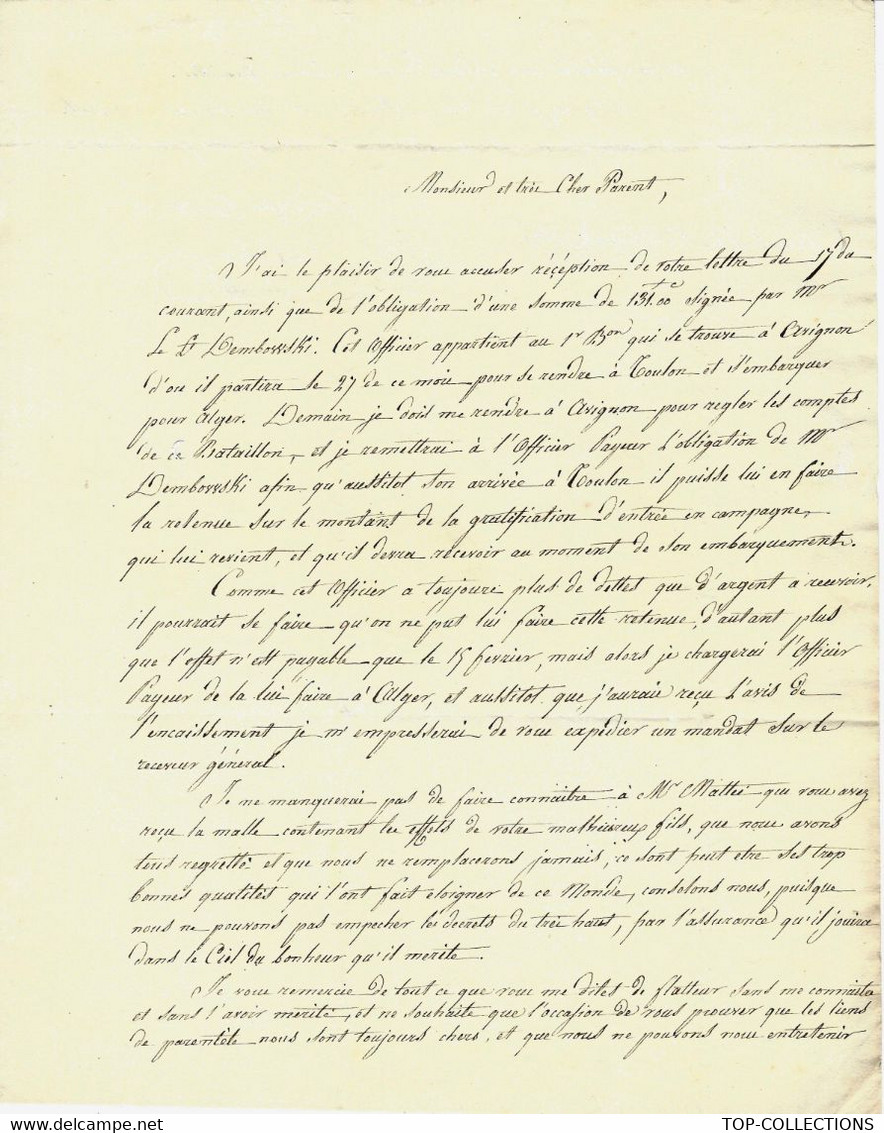 Monsieur et très Cher Parent,
J'ai le plaisir de vous accuser réception de votre lettre du 17 du
courant, ainsi que de l'obligation d'une somme de 131.f00c signée par Mr
Le Lt Dembowski. Cet Officier appartient au 1er Bon qui se trouve à Avignon
d'ou il partira le 27 de ce mois pour se rendre à Toulon et s'embarquer
pour Alger. Demain je dois me rendre à Avignon pour regler les comptes
de ce Bataillon, et je remettrai à l'Officier Payeur L'obligation de Mr
Dembowski afin qu'aussitot son arrivée à Toulon il puisse lui en faire
la retenue sur le montant de la gratification d'entrée en campagne,
qui lui revient, et qu'il devra recevoir au moment de son embarquement.
Comme cet Officier a toujours plus de dettes que d'argent a recevoir,
il pourrait se faire qu'on ne put lui faire cette retenue, d'autant plus
que l'effet n'est payable que le 15 fevrier, mais alors je chargerai l'Officier
Payeur de la lui faire à Alger, et aussitot que j'aurais reçu L'avis de
l'encaissement je m'empresserai de vous expedier un mandat sur le
receveur général.
Je ne manquerai pas de faire connaitre à Mr Matteï que vous avez
reçu la malle contenant les effets de votre malheureux fils, que nous avons
tous regretté et que nous ne remplacerons jamais, ce sont peut etre ses trop
bonnes qualités qui l'ont fait eloigner de ce Monde, consolons nous, puisque
nous ne pouvons pas empecher les decrets du très haut, par l'assurance qu'il jouira
dans le Ciel du bonheur qu'il merite.
Je vous remercie de tout ce que vous me dites de flatteur sans me connaitre
et sans l'avoir mérité, et ne souhaite que l'occasion de vous prouver que les liens
de parentèle nous sont toujours chers, et que nous ne pouvons nous entretenir
TOP-COLLECTIONS